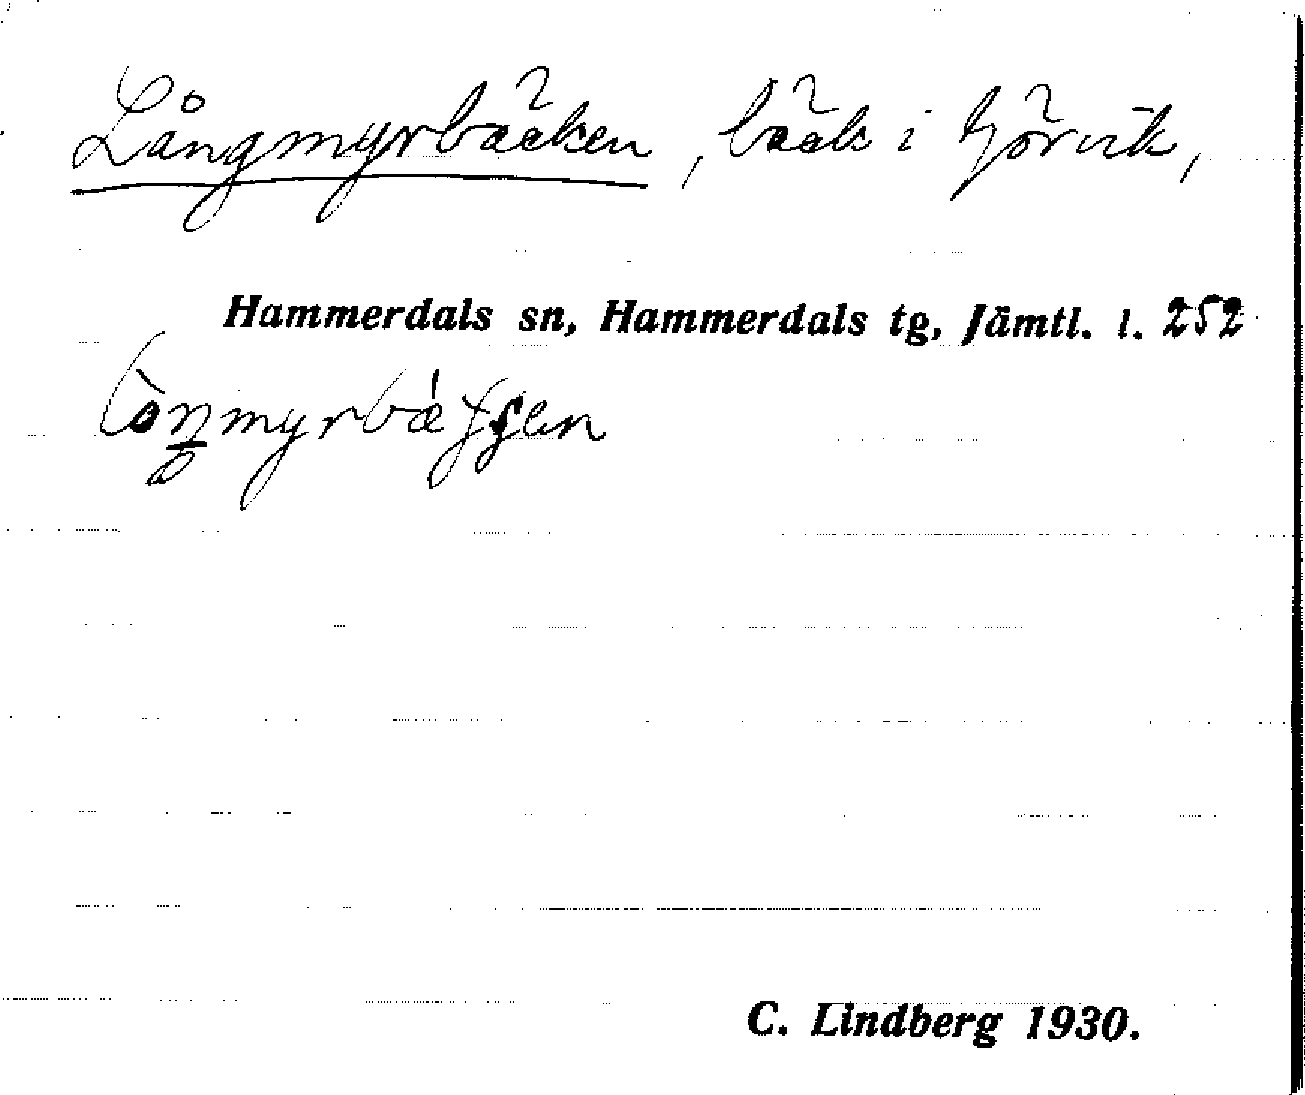 Långmyrbäcken, bäck i Fjörvik,
Hammerdals sn, Hammerdals tg, Jämtl. l. 252
C. Lindberg 1930.